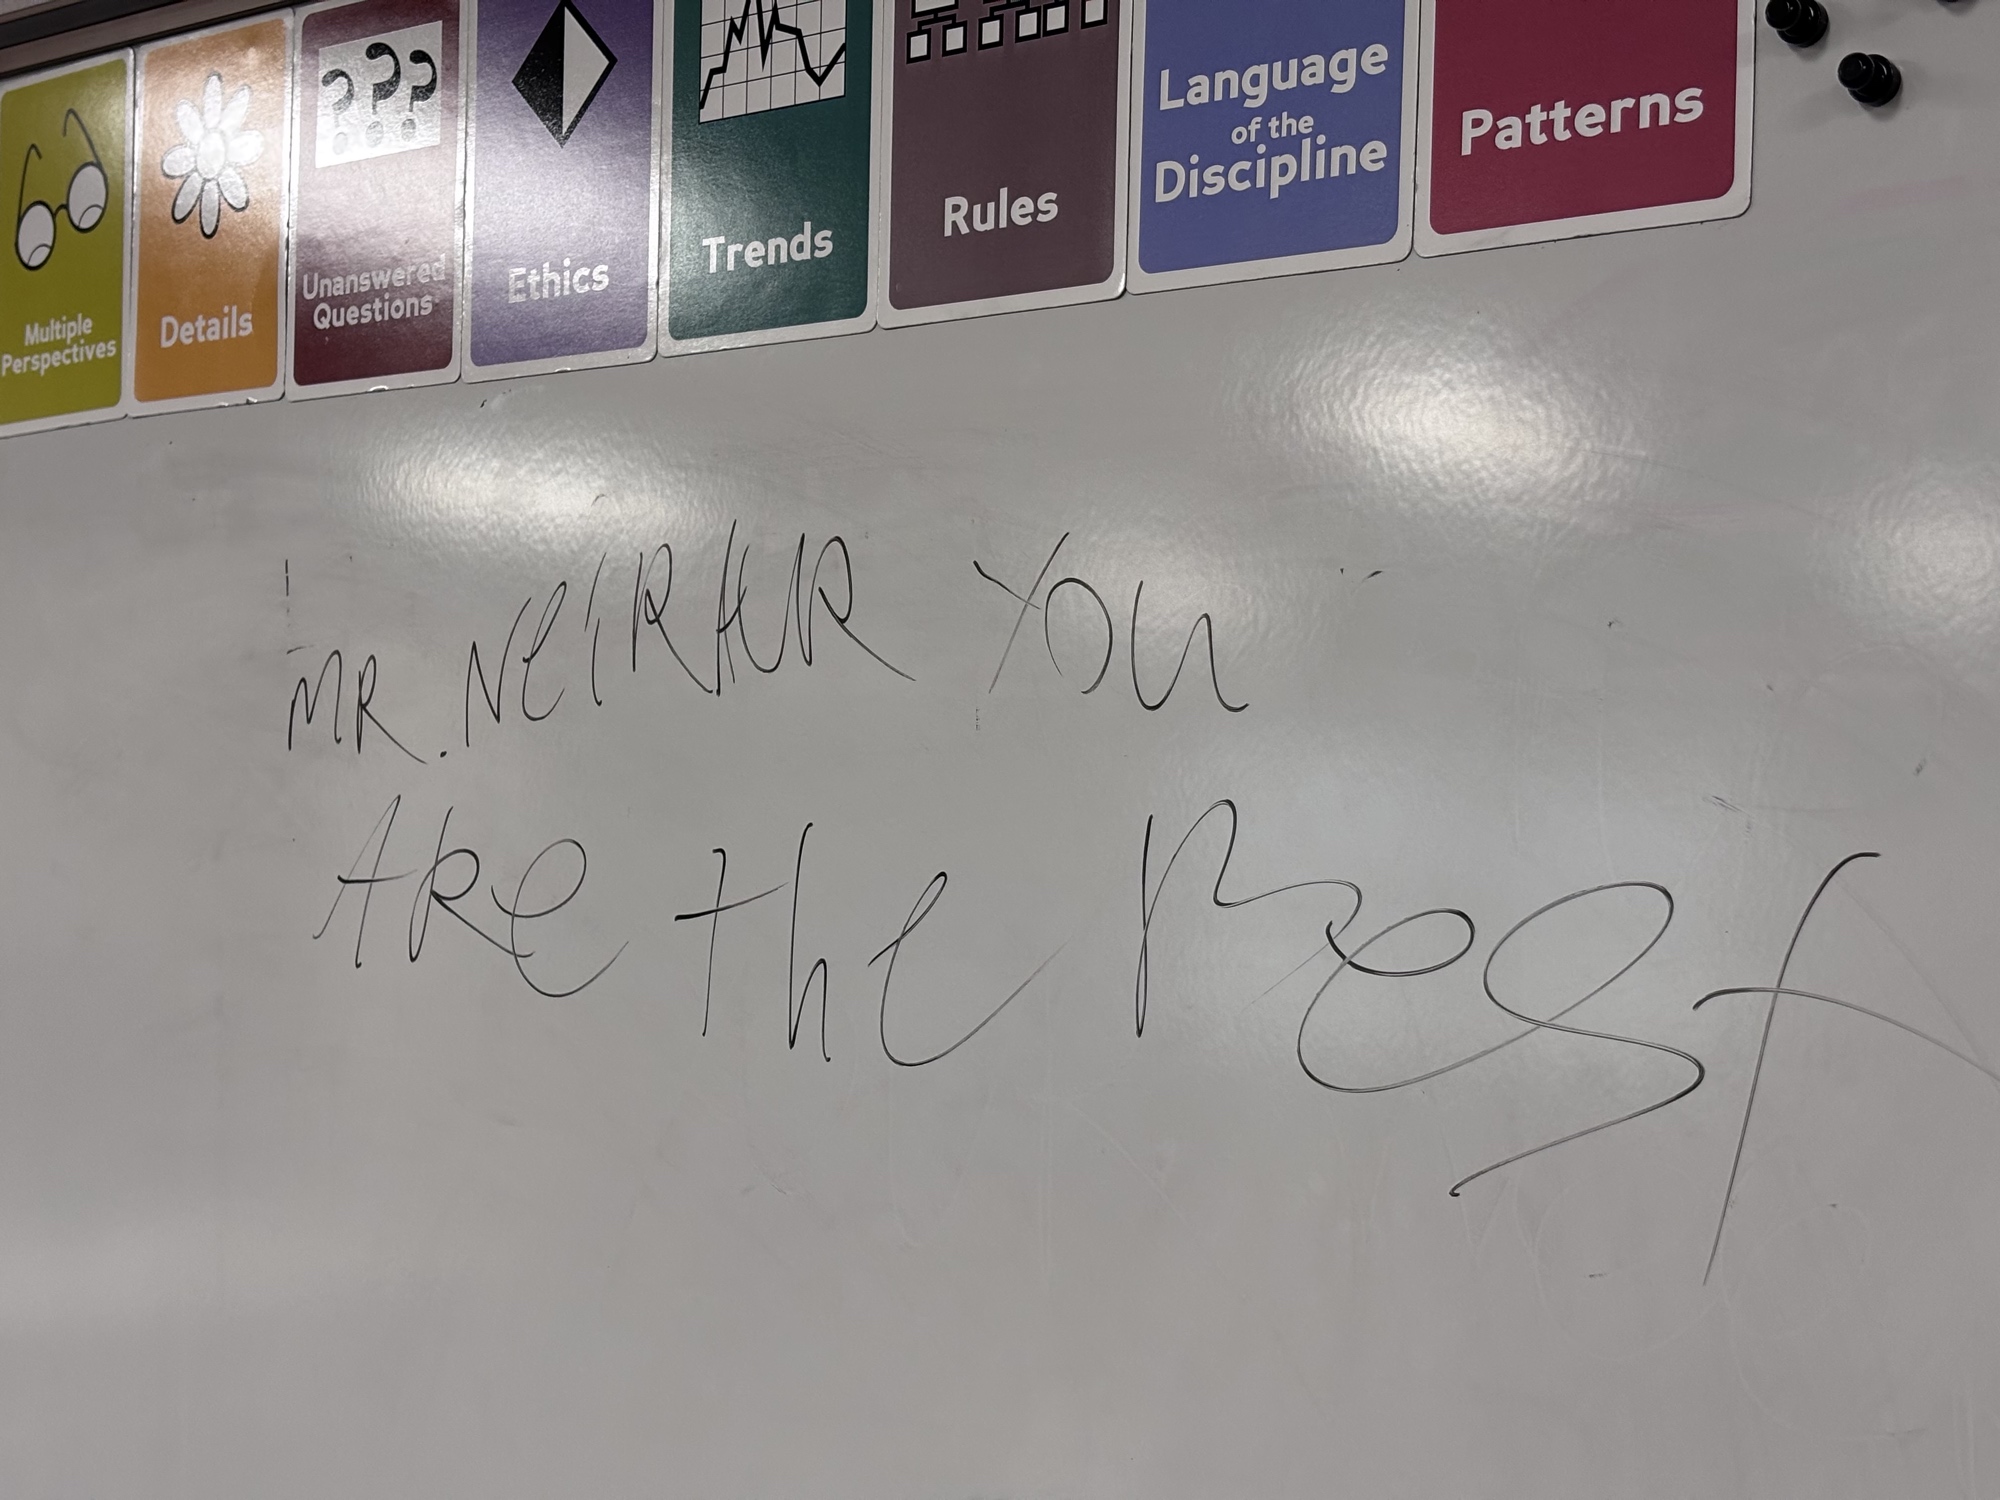 Multiple
Perspectives
Details
???
Unanswered
Questions
Ethics
Trends
Rules
Language
of the
Discipline
Patterns
MR. You
ARe the Best